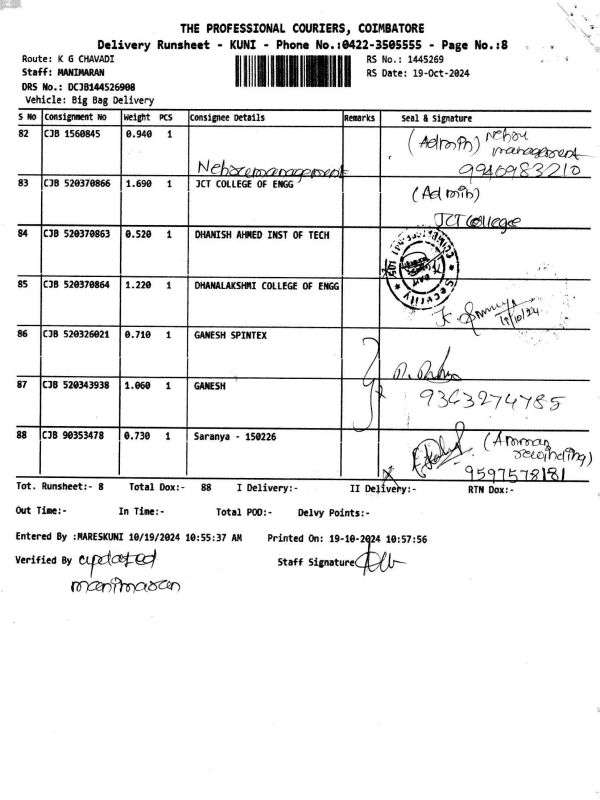 THE PROFESSIONAL COURIERS, COIMBATORE
Delivery Runsheet - KUNI - Phone No.:0422-3505555 - Page No.:8
Route: K G CHAVADI RS No.: 1445269
Staff: MANIMARAN RS Date: 19-Oct-2024
DRS No.: DCJB144526908
Vehicle: Big Bag Delivery
S No Consignment No Weight PCS Consignee Details Remarks Seal & Signature
82 CJB 1560845 0.940 1 (Admin) Nehru
management
Nehru management 9940983210
83 CJB 520370866 1.690 1 JCT COLLEGE OF ENGG (Admin)
JCT College
84 CJB 520370863 0.520 1 DHANISH AHMED INST OF TECH
Security
85 CJB 520370864 1.220 1 DHANALAKSHMI COLLEGE OF ENGG
19/10/24
86 CJB 520326021 0.710 1 GANESH SPINTEX
87 CJB 520343938 1.060 1 GANESH 9363274785
88 CJB 90353478 0.730 1 Saranya - 150226 (Amman
rewinding)
9597578181
Tot. Runsheet:- 8 Total Dox:- 88 I Delivery:- II Delivery:- RTN Dox:-
Out Time:- In Time:- Total POD:- Delvy Points:-
Entered By :MARESKUNI 10/19/2024 10:55:37 AM Printed On: 19-10-2024 10:57:56
Verified By updated Staff Signature
manimaran